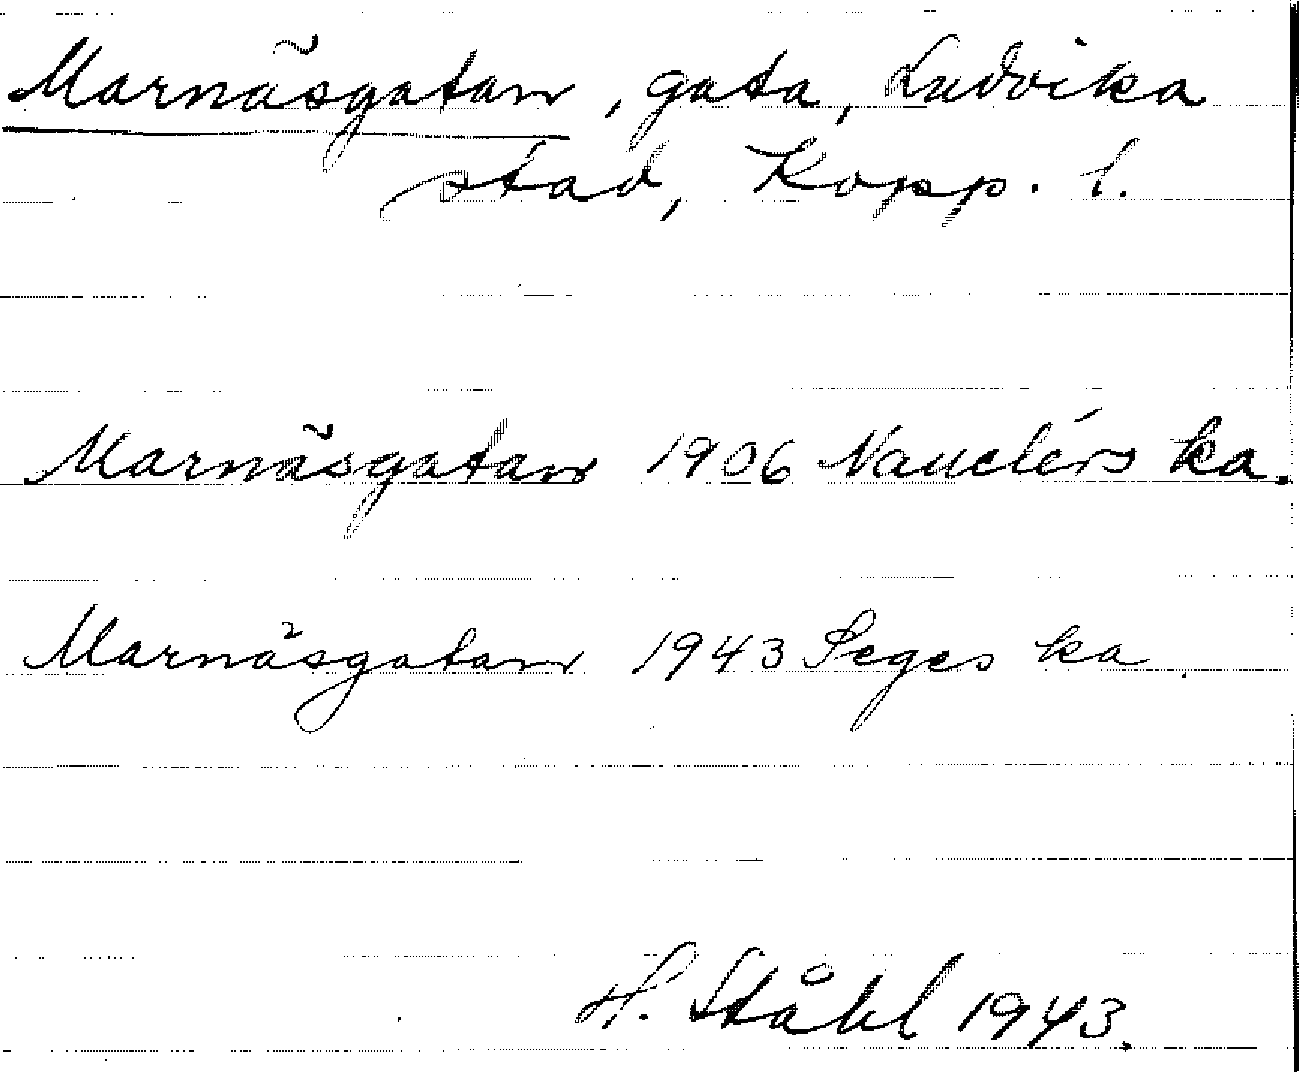 Marnäsgatan, gata, Ludvika
stad, Kopp. l.
Marnäsgatan 1906 Nauclérs ka.
Marnäsgatan 1943 Seges ka
H. Ståhl 1943.